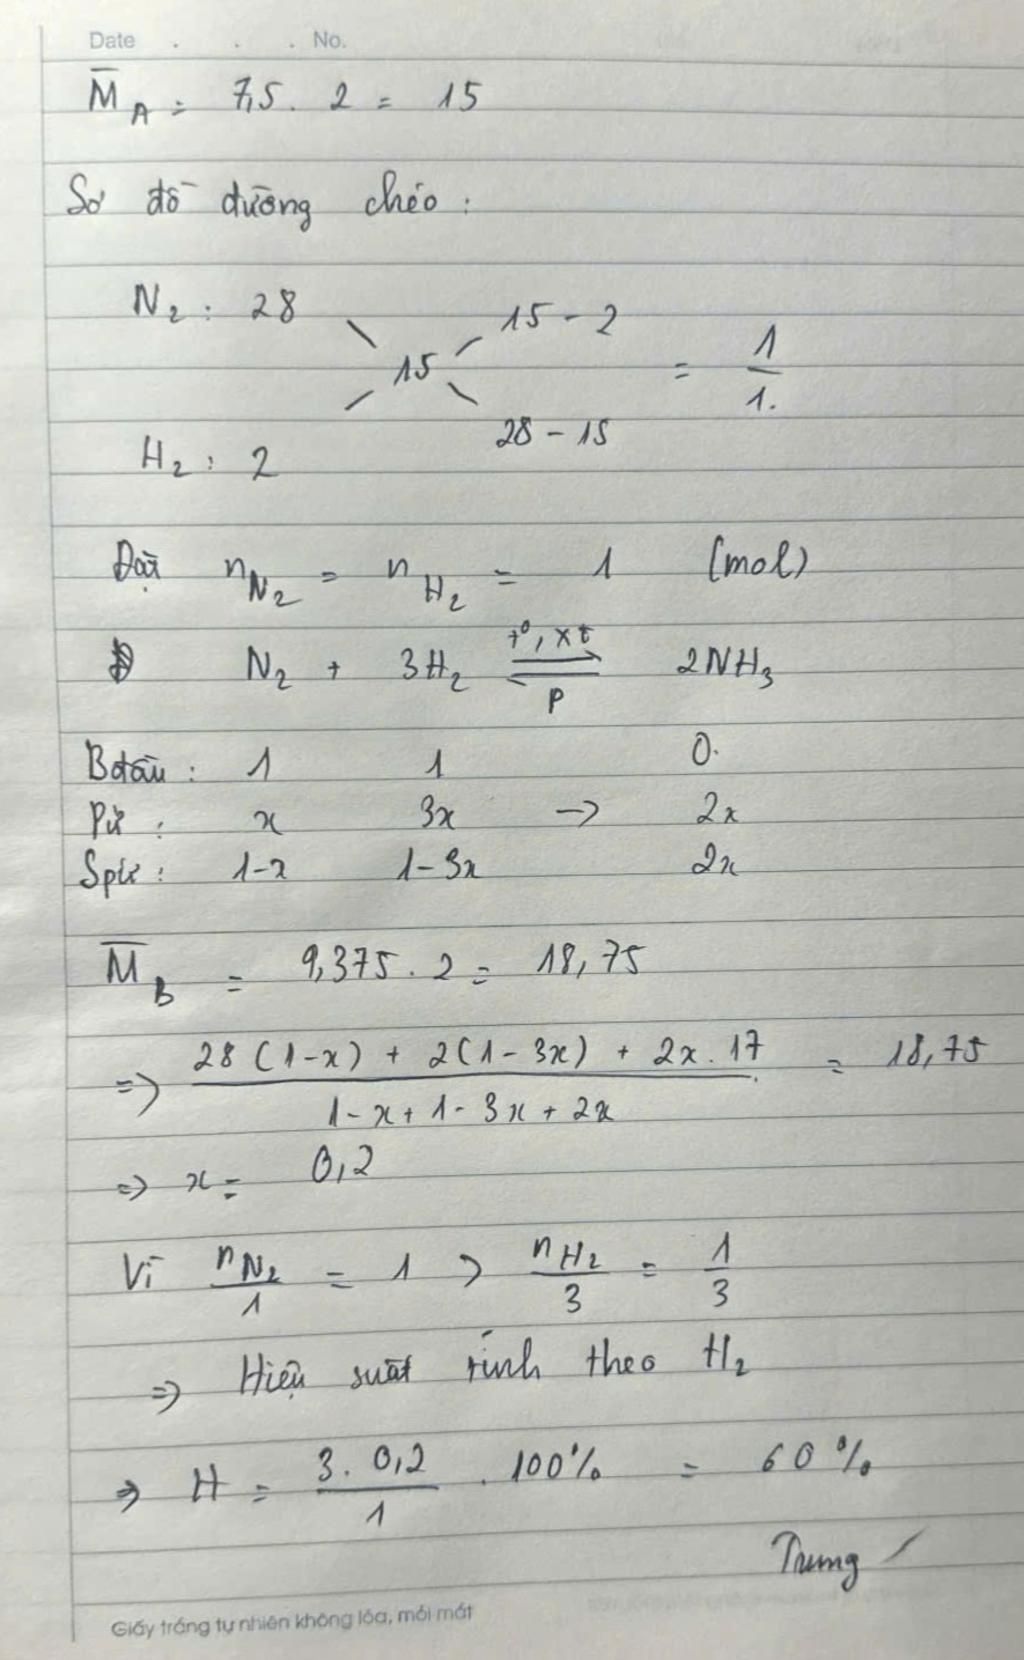 Date . . . No.
M̅ A = 7,5 . 2 = 15
Sơ đồ đường chéo :
N₂ : 28 15 - 2
15 = 1/1.
H₂ : 2 28 - 15
Đặt n N₂ = n H₂ = 1 (mol)
N₂ + 3H₂ ⇌ (t°, xt, P) 2NH₃
Bđầu : 1 1 0.
Pứ : x 3x -> 2x
Spứ : 1-x 1-3x 2x
M̅ B = 9,375 . 2 = 18,75
=> (28(1-x) + 2(1-3x) + 2x.17)/(1-x+1-3x+2x) = 18,75
=> x = 0,2
Vì n N₂/1 = 1 > n H₂/3 = 1/3
=> Hiệu suất tính theo H₂
=> H = (3. 0,2)/1 . 100% = 60%
Trung
Giấy trắng tự nhiên không lóa, mỏi mắt